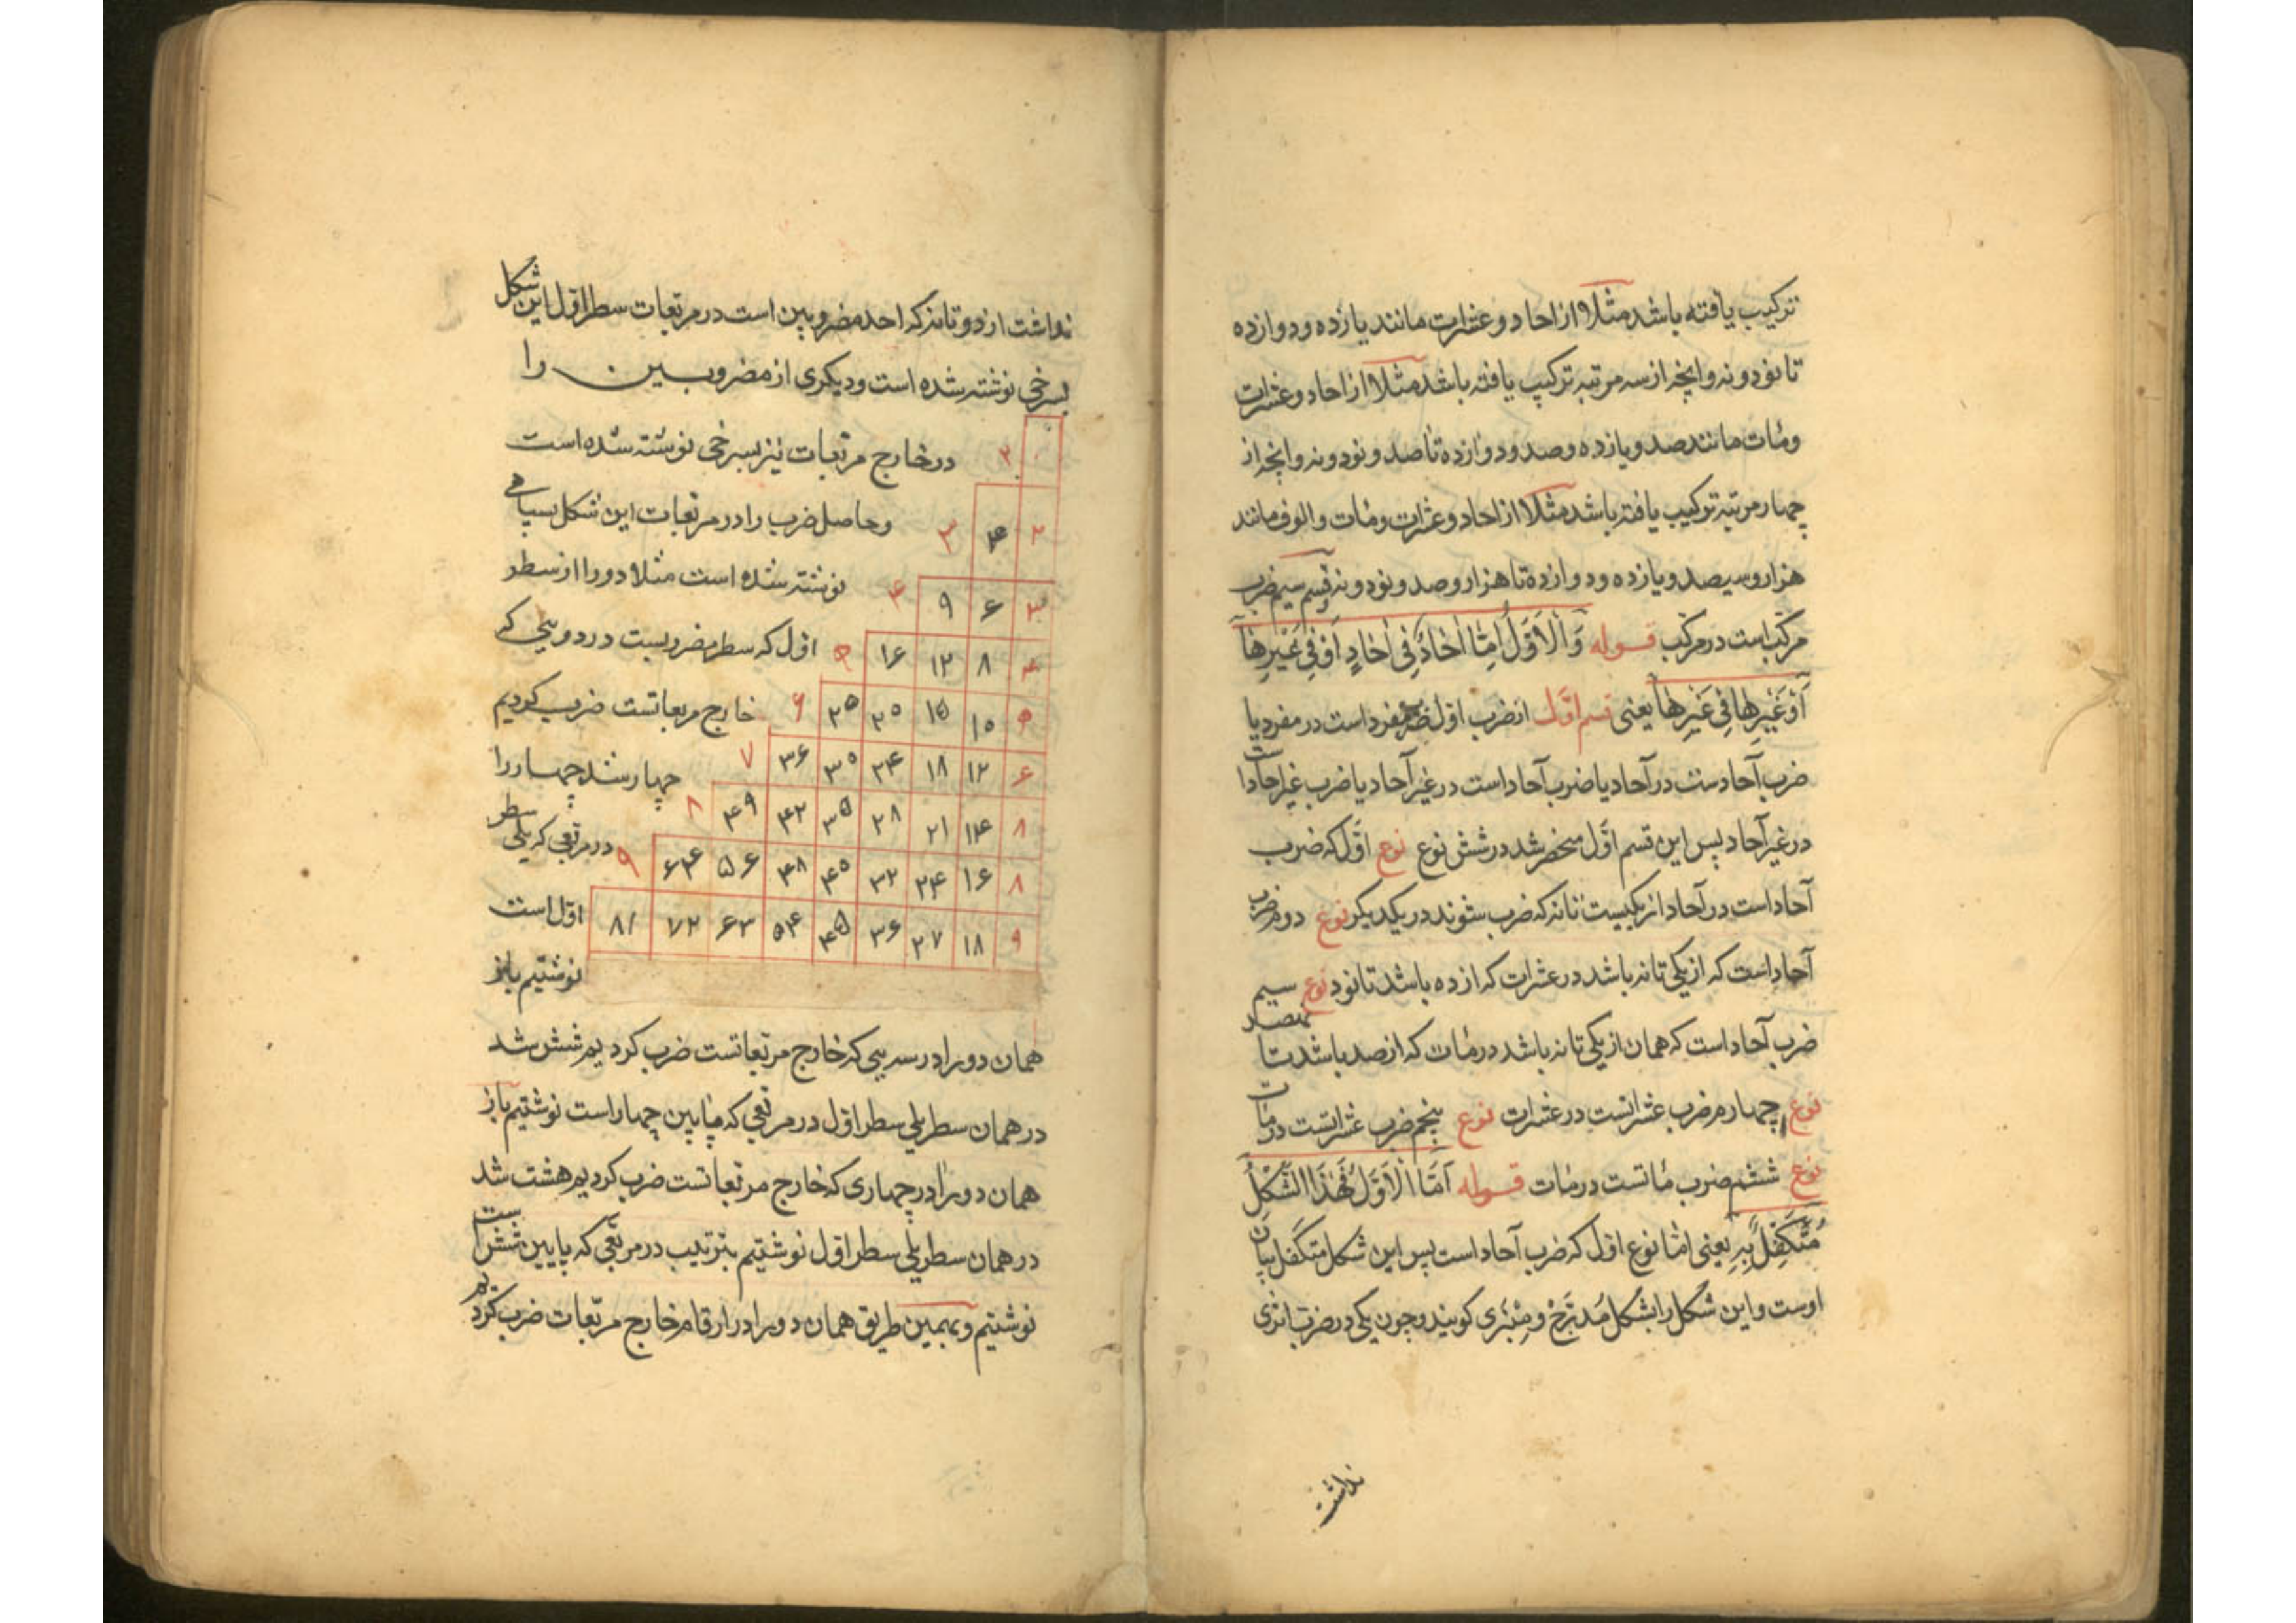 ترکیب یافته باشد مثلا از احاد و عشرات مانند یازده و دوازده
تا نود و نه و انچه از سه مرتبه ترکیب یافته باشد مثلا از احاد و عشرات
و مات مانند صد و یازده و صد و دوازده تا صد و نود و نه و انچه از
چهار مرتبه ترکیب یافته باشد مثلا از احاد و عشرات و مات و الوف مانند
هزار و سیصد و یازده و دوازده تا هزار و صد و نود و نه قسم سیم ضرب
مرکب است در مرکب قوله وَالْاَوَّلُ اِمّا اٰحادٌ فِی اٰحادٍ اَوْ فِی غَیْرِها
اَوْ غَیْرِها فِی غَیْرِها یعنی قسم اول از ضرب اول ضرب مفرد است در مفرد یا
ضرب آحادست در آحاد یا ضرب آحاد است در غیر آحاد یا ضرب غیر احاد است
در غیر آحاد پس این قسم اول منحصر شد در شش نوع نوع اول که ضرب
آحاد است در آحاد از یکیست تا نه که ضرب شوند در یکدیکر نوع دوم ضرب
آحاد است که از یکی تا نه باشد در عشرات که از ده باشد تا نود نوع سیم
ضرب آحاد است که همان از یکی تا نه باشد در مات که از صد باشد تا نهصد
نوع چهارم ضرب عشراتست در عشرات نوع پنجم ضرب عشراتست در مات
نوع ششم ضرب ماتست در مات قوله اَمَّا الْاَوَّلُ فَهٰذَا الشَّکْلُ
مُتَکَفِّلٌ بِهِ یعنی اما نوع اول که ضرب آحاد است پس این شکل متکفل بیان
اوست و این شکل را بشکل مُدَرَّج و مِنْبَری کویند و چون یکی در ضرب اثری
نداشت
نداشت از دو تا نه که احد مضروبین است در مربعات سطر اول این شکل
بسرخی نوشته شده است و دیکری از مضروبین را
در خارج مربعات نیز بسرخی نوشته شده است
۲
و حاصل ضرب را در مربعات این شکل بسیاهی
۲ ۴ ۳
نوشته شده است مثلا دو را از سطر
۳ ۶ ۹ ۴
اول که سطر مضروبست در دویی که
۴ ۸ ۱۲ ۱۶ ۵
خارج مربعاتست ضرب کردیم
۵ ۱۰ ۱۵ ۲۰ ۲۵ ۶
چهار شد چهار را
۶ ۱۲ ۱۸ ۲۴ ۳۰ ۳۶ ۷
۸ ۱۴ ۲۱ ۲۸ ۳۵ ۴۲ ۴۹ ۸
در مربعی که یلی سطر
۸ ۱۶ ۲۴ ۳۲ ۴۰ ۴۸ ۵۶ ۶۴ ۹
اول است
۹ ۱۸ ۲۷ ۳۶ ۴۵ ۵۴ ۶۳ ۷۲ ۸۱
نوشتیم باز
همان دو را در سه یی که خارج مربعاتست ضرب کردیم شش شد
در همان سطر یلی سطر اول در مربعی که پایین چهار است نوشتیم باز
همان دو را در چهاری که خارج مربعاتست ضرب کردیم هشت شد
در همان سطر یلی سطر اول نوشتیم بترتیب در مربعی که پایین شش است
نوشتیم و بهمین طریق همان دو را در ارقام خارج مربعات ضرب کردیم